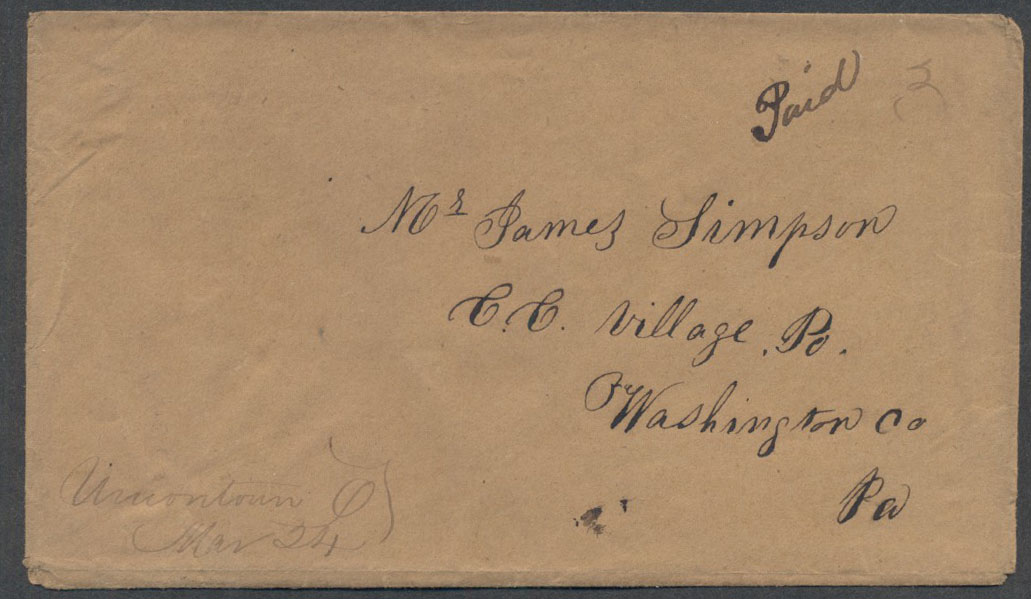 Paid 3
Mr James Simpson
C.C. Village, Po.
Washington Co
Pa
Uniontown O
Mar 24